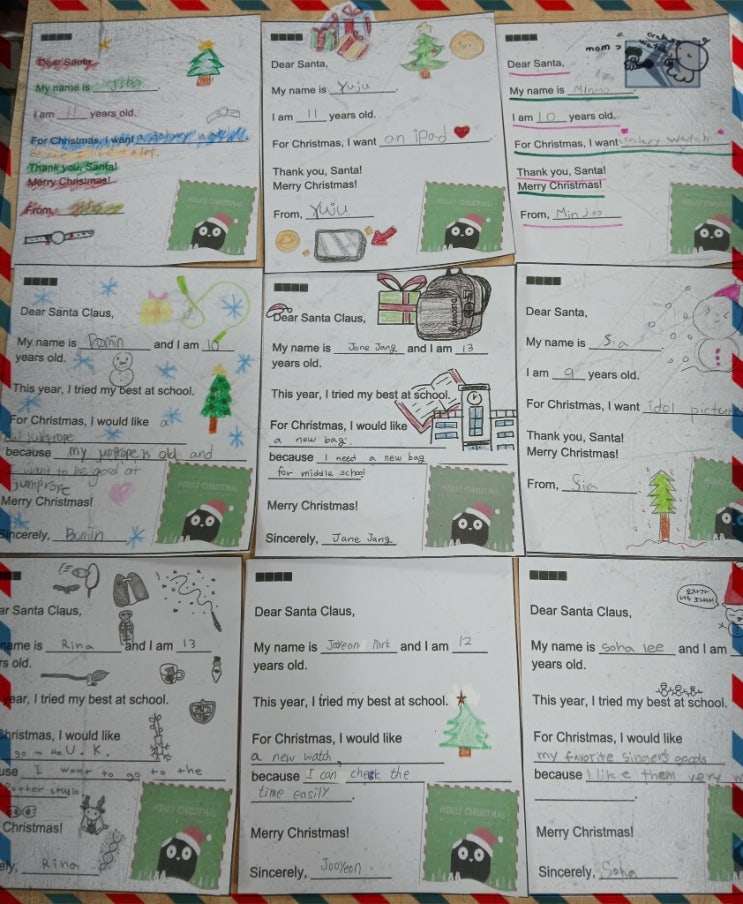 Dear Santa,
My name is
I am 11 years old.
For Christmas, I want a
Thank you, Santa!
Merry Christmas!
From,
MERRY CHRISTMAS
Dear Santa,
My name is Yuju.
I am 11 years old.
For Christmas, I want an iPad
Thank you, Santa!
Merry Christmas!
From, Yuju
MERRY CHRISTMAS
mom
Dear Santa,
My name is Minjoo
I am 10 years old.
For Christmas, I want
Thank you, Santa!
Merry Christmas!
From, Minjoo
Dear Santa Claus,
My name is Bomin and I am 10
years old.
This year, I tried my best at school.
For Christmas, I would like a
jumprope
because my jumprope is old and
I want to be good at
jumprope
Merry Christmas!
Sincerely, Bomin
MERRY CHRISTMAS
Dear Santa Claus,
My name is Jane Jang and I am 13
years old.
This year, I tried my best at school.
For Christmas, I would like
a new bag.
because I need a new bag
for middle school
Merry Christmas!
Sincerely, Jane Jang
MERRY CHRISTMAS
Dear Santa,
My name is Sia.
I am 9 years old.
For Christmas, I want idol
Thank you, Santa!
Merry Christmas!
From, Sia
Santa Claus,
name is Rina and I am 13
old.
year, I tried my best at school.
Christmas, I would like
go to the U.K.
I want to go to the
Christmas!
Rina
MERRY CHRISTMAS
Dear Santa Claus,
My name is Jooyeon Park and I am 12
years old.
This year, I tried my best at school.
For Christmas, I would like
a new watch,
because I can check the
time easily.
Merry Christmas!
Sincerely, Jooyeon
MERRY CHRISTMAS
Dear Santa Claus,
My name is Soha lee and I am
years old.
This year, I tried my best at school.
For Christmas, I would like
my favorite singer's goods
because I like them very
Merry Christmas!
Sincerely, Soha